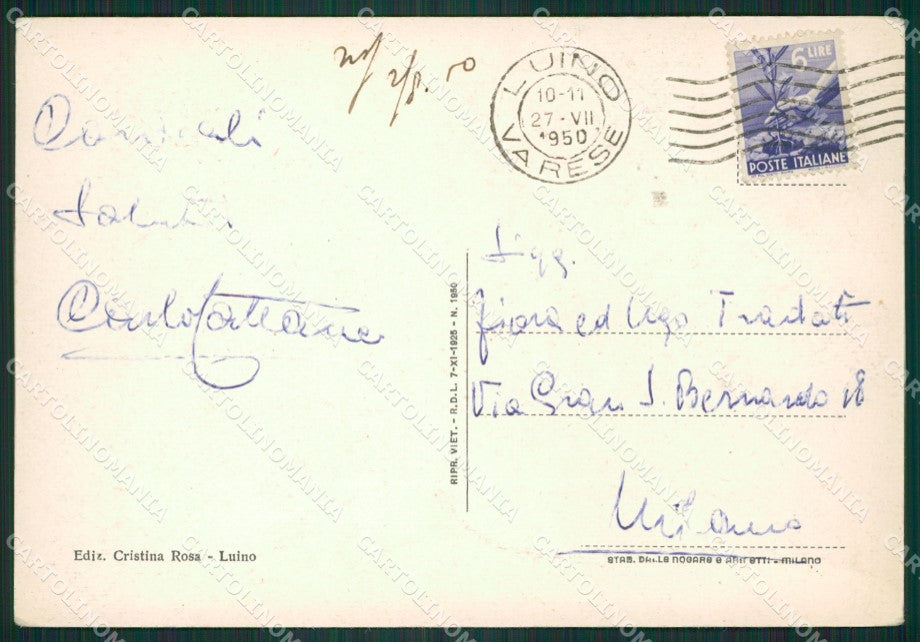 LUINO
10-11
27-VII
1950
VARESE
6 LIRE
POSTE ITALIANE
Cordiali
saluti
Carlo Cattaneo
Sigg.
Fiora ed Ugo Tradati
Via Gran S. Bernardo 18
Milano
RIPR. VIET. - R.D.L. 7-XI-1925 - N. 1950
Ediz. Cristina Rosa - Luino
STAB. DALLE NOGARE E ARMETTI - MILANO
CARTOLINOMANIA